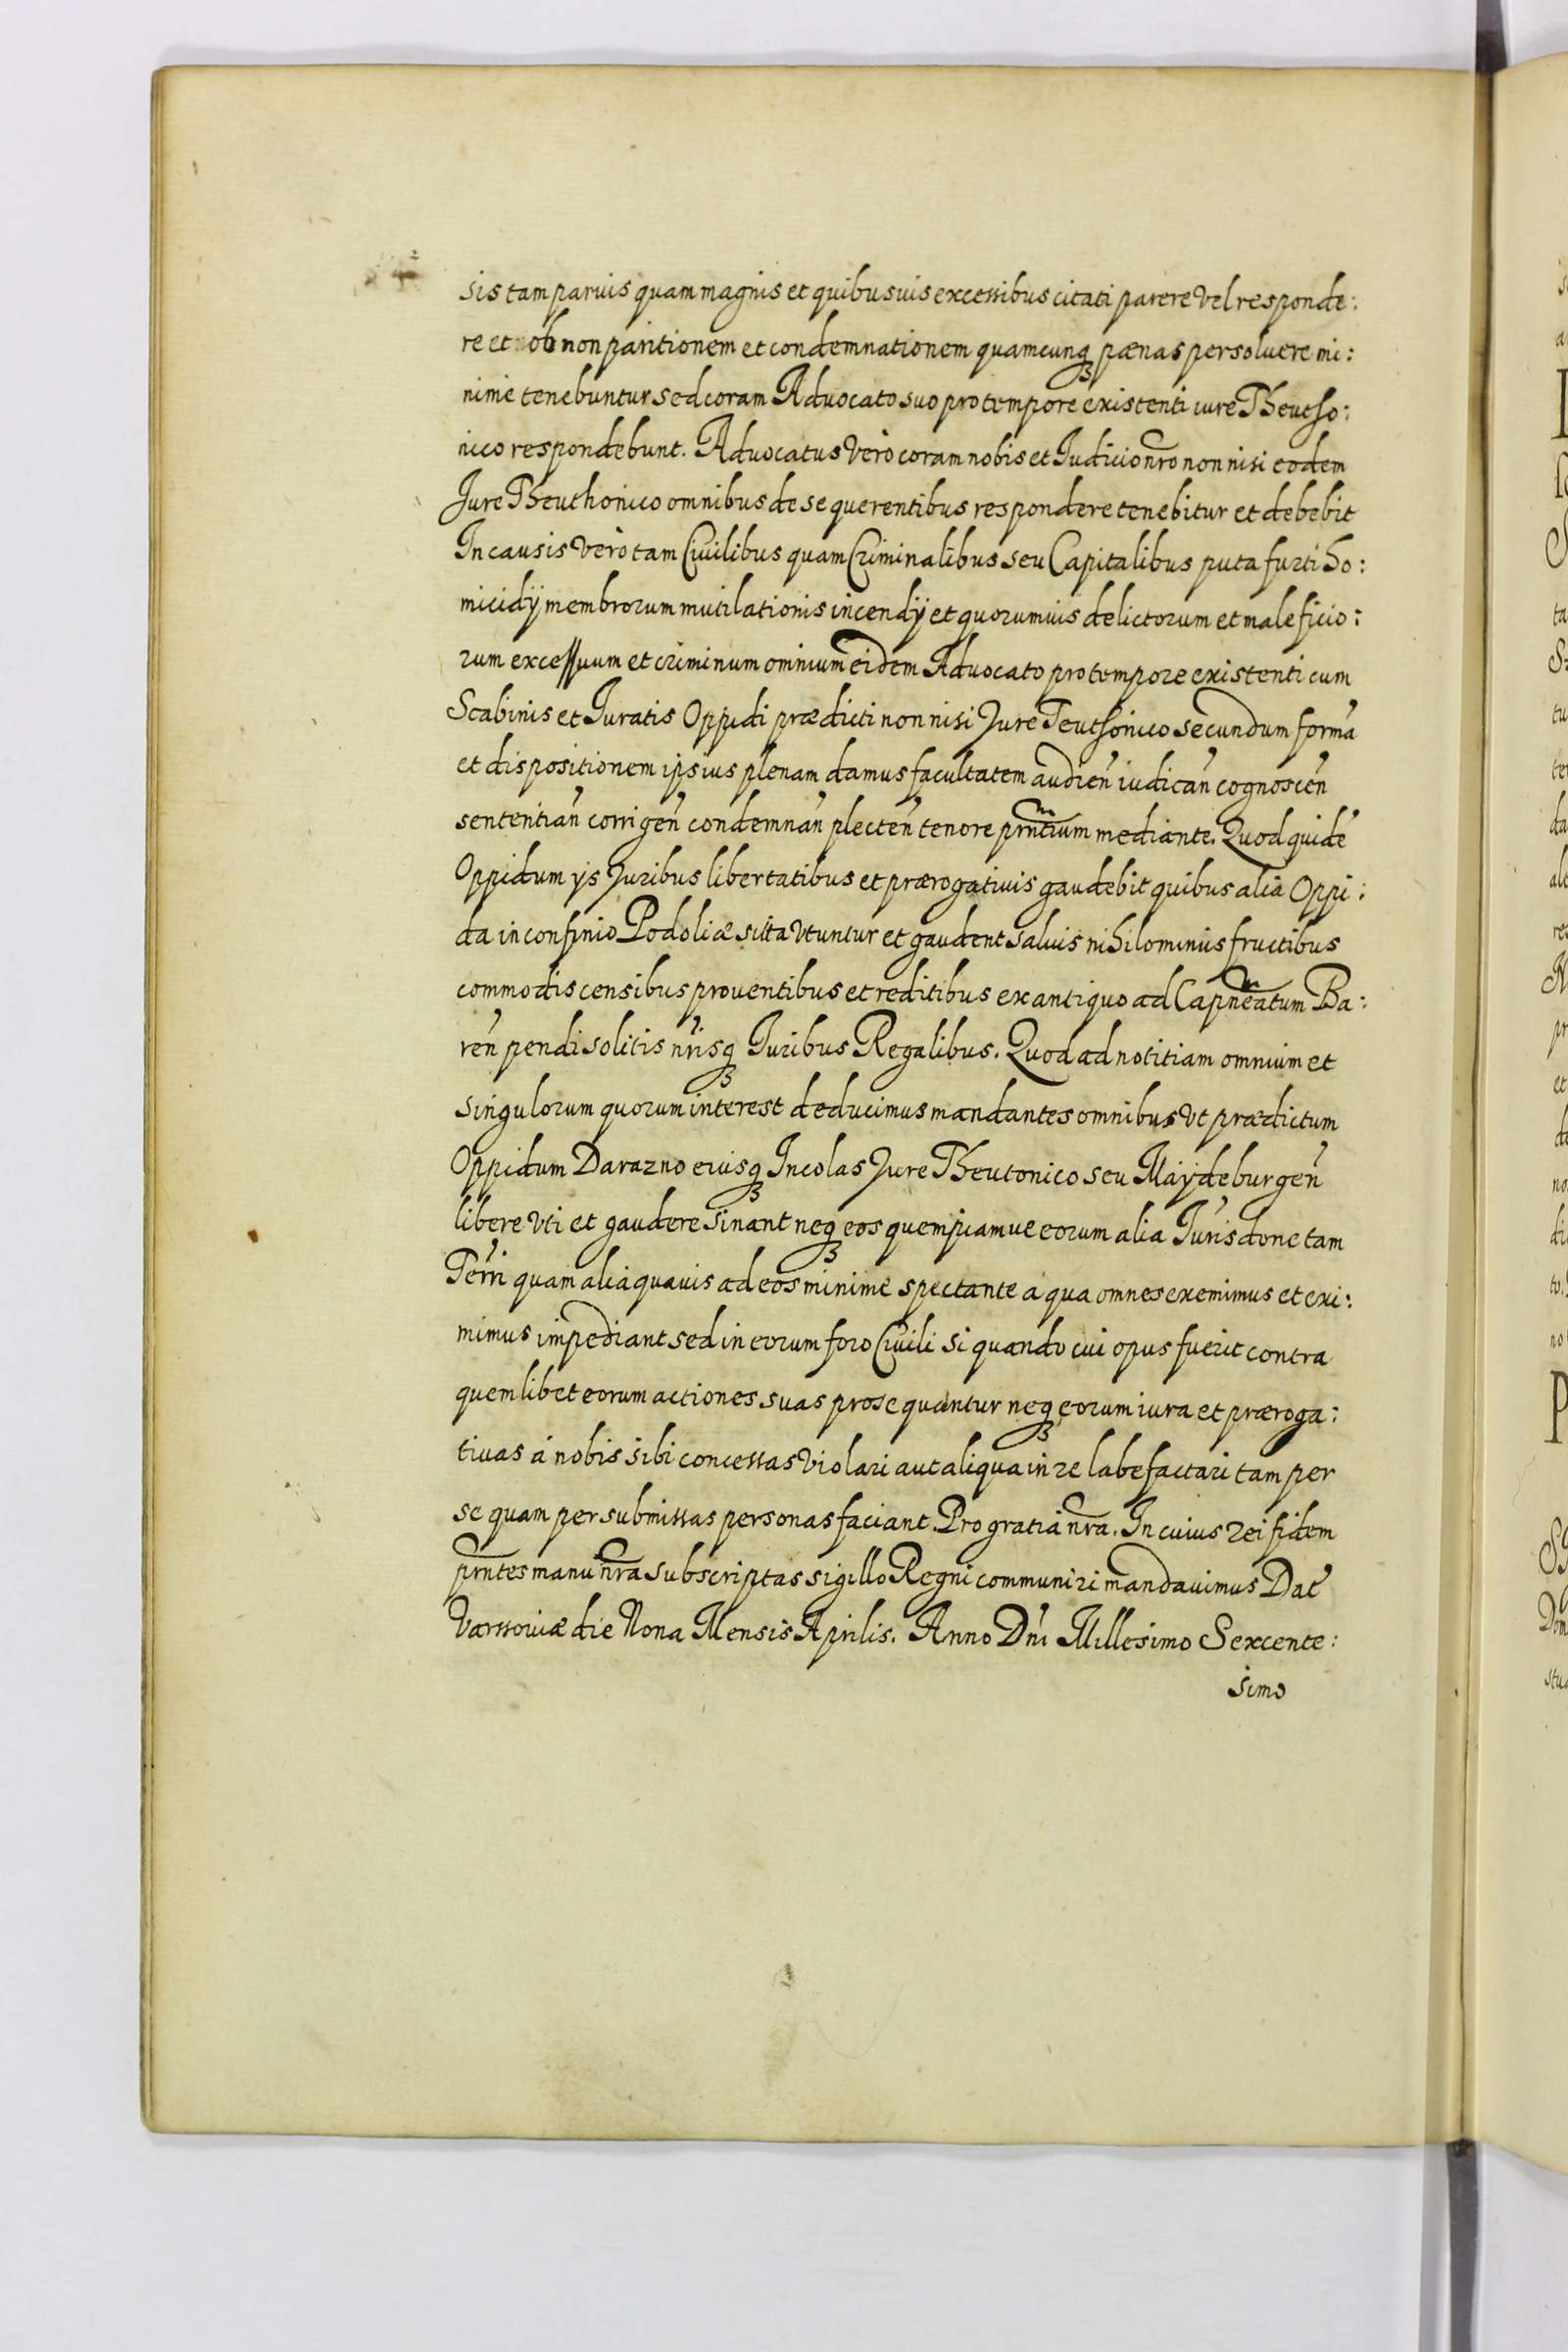 sis tam paruis quam magnis et quibusuis excessibus citati parere vel responde:
re et ob non paritionem et condemnationem quamcunqꝫ pænas persoluere mi:
nime tenebuntur sed coram Aduocato suo pro tempore existenti iure Theutho:
nico respondebunt. Aduocatus verò coram nobis et Iudicio nro non nisi eodem
Jure Theuthonico omnibus de se querentibus respondere tenebitur et debebit
In causis verò tam Ciuilibus quam Criminalibus seu Capitalibus puta furti ho:
micidÿ membrorum mutilationis incendÿ et quorumuis delictorum et maleficio:
rum excessuum et criminum omnium eidem Aduocato pro tempore existenti cum
Scabinis et Iuratis Oppidi prædicti non nisi Jure Teuthonico secundum formã
et dispositionem ipsius plenam damus facultatem audien̄ iudican̄ cognoscen̄
sententian̄ corrigen̄ condemnan̄ plecten̄ tenore prntium mediante. Quod quidē
Oppidum ÿs Juribus libertatibus et prærogatiuis gaudebit quibus alia Oppi:
da in confinio Podoliæ sita vtuntur et gaudent saluis nihilominus fructibus
commodis censibus prouentibus et reditibus ex antiquo ad Capneatum Ba:
ren̄ pendi solitis nrisqꝫ Iuribus Regalibus. Quod ad notitiam omnium et
singulorum quorum interest deducimus mandantes omnibus vt prædictum
Oppidum Darazno eiusqꝫ Incolas Jure Theutonico seu Maydeburgen̄
libere vti et gaudere sinant neqꝫ eos quempiamue eorum alia Iurisdone tam
Terri quam alia quauis ad eos minime spectante à qua omnes exemimus et exi:
mimus impediant sed in eorum foro Ciuili si quando cui opus fuerit contra
quemlibet eorum actiones suas prosequantur neqꝫ eorum iura et præroga:
tiuas à nobis sibi concessas violari aut aliqua in re labefactari tam per
se quam per submissas personas faciant Pro gratia nra. In cuius rei fidem
prntes manu nra subscriptas sigillo Regni communiri mandauimus Dat̄
Varssouiæ die Nona Mensis Aprilis. Anno Dni Millesimo Sexcente:
simo